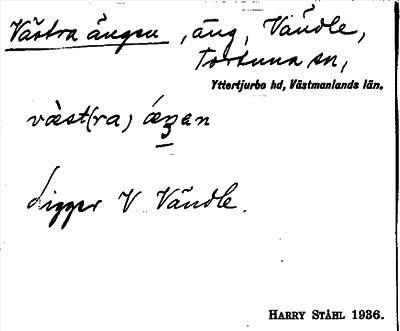 Västra ängen, äng, Vändle,
Tortuna sn,
Yttertjurbo hd, Västmanlands län.
vàst(ra) ä́ŋen
Ligger V Vändle.
HARRY STÅHL 1936.